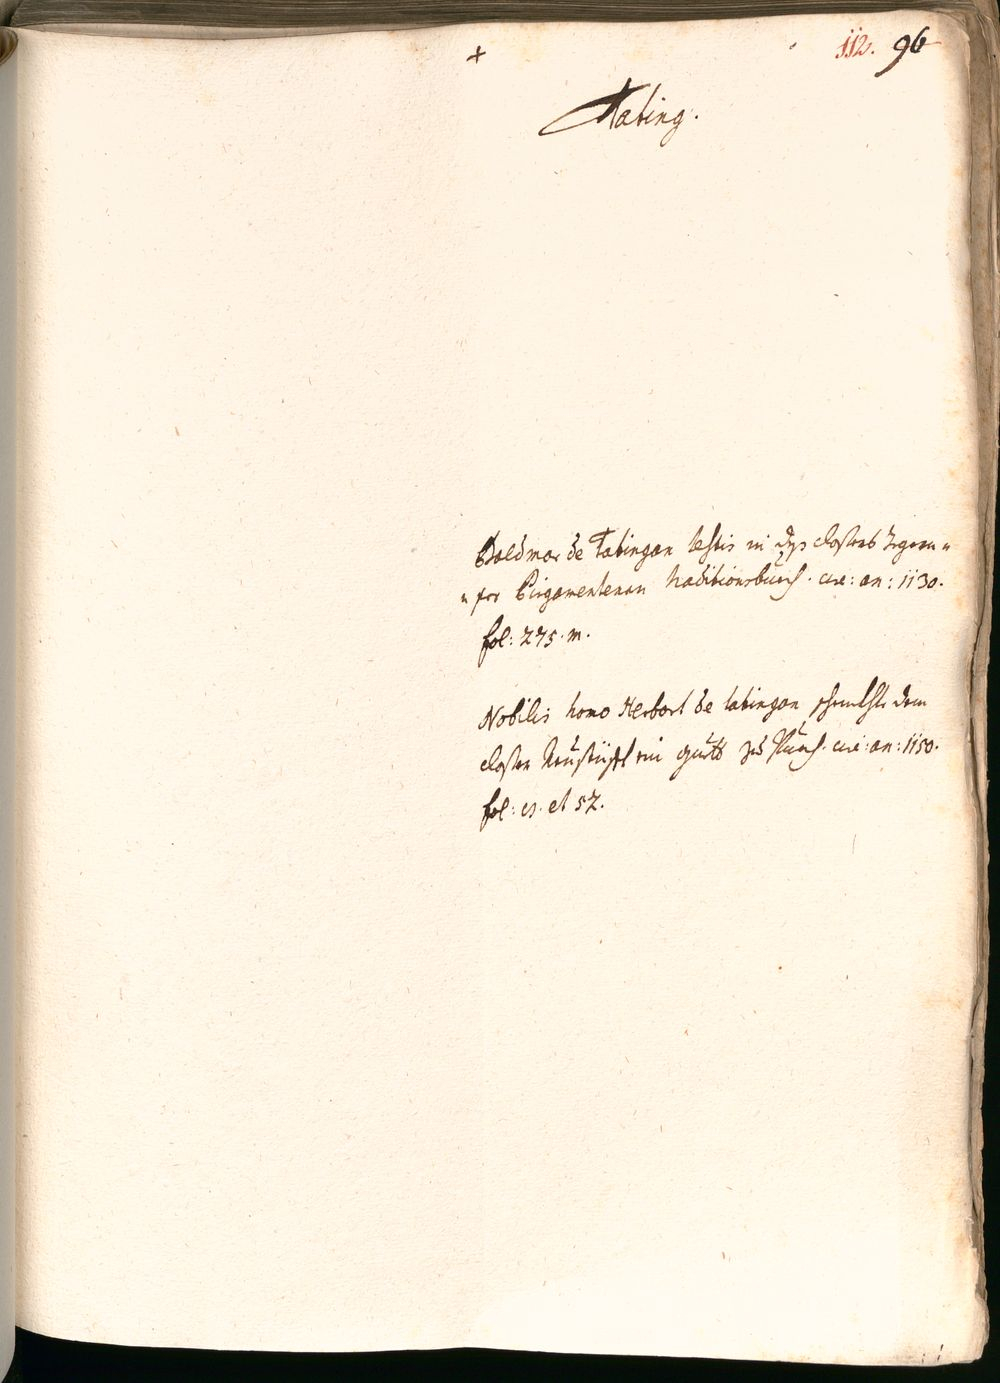 +
112. 96
Tating.
Baldmar de Tatingan testis in des closters Tegern=
=see Pirgamentenen traditionsbuech. circ: an: 1130.
fol: 275. m.
Nobilis homo Herbort de tatingan schenckht dem
closter Neustüfft ein guett zu Puech. circ: an: 1150.
fol: et 52.